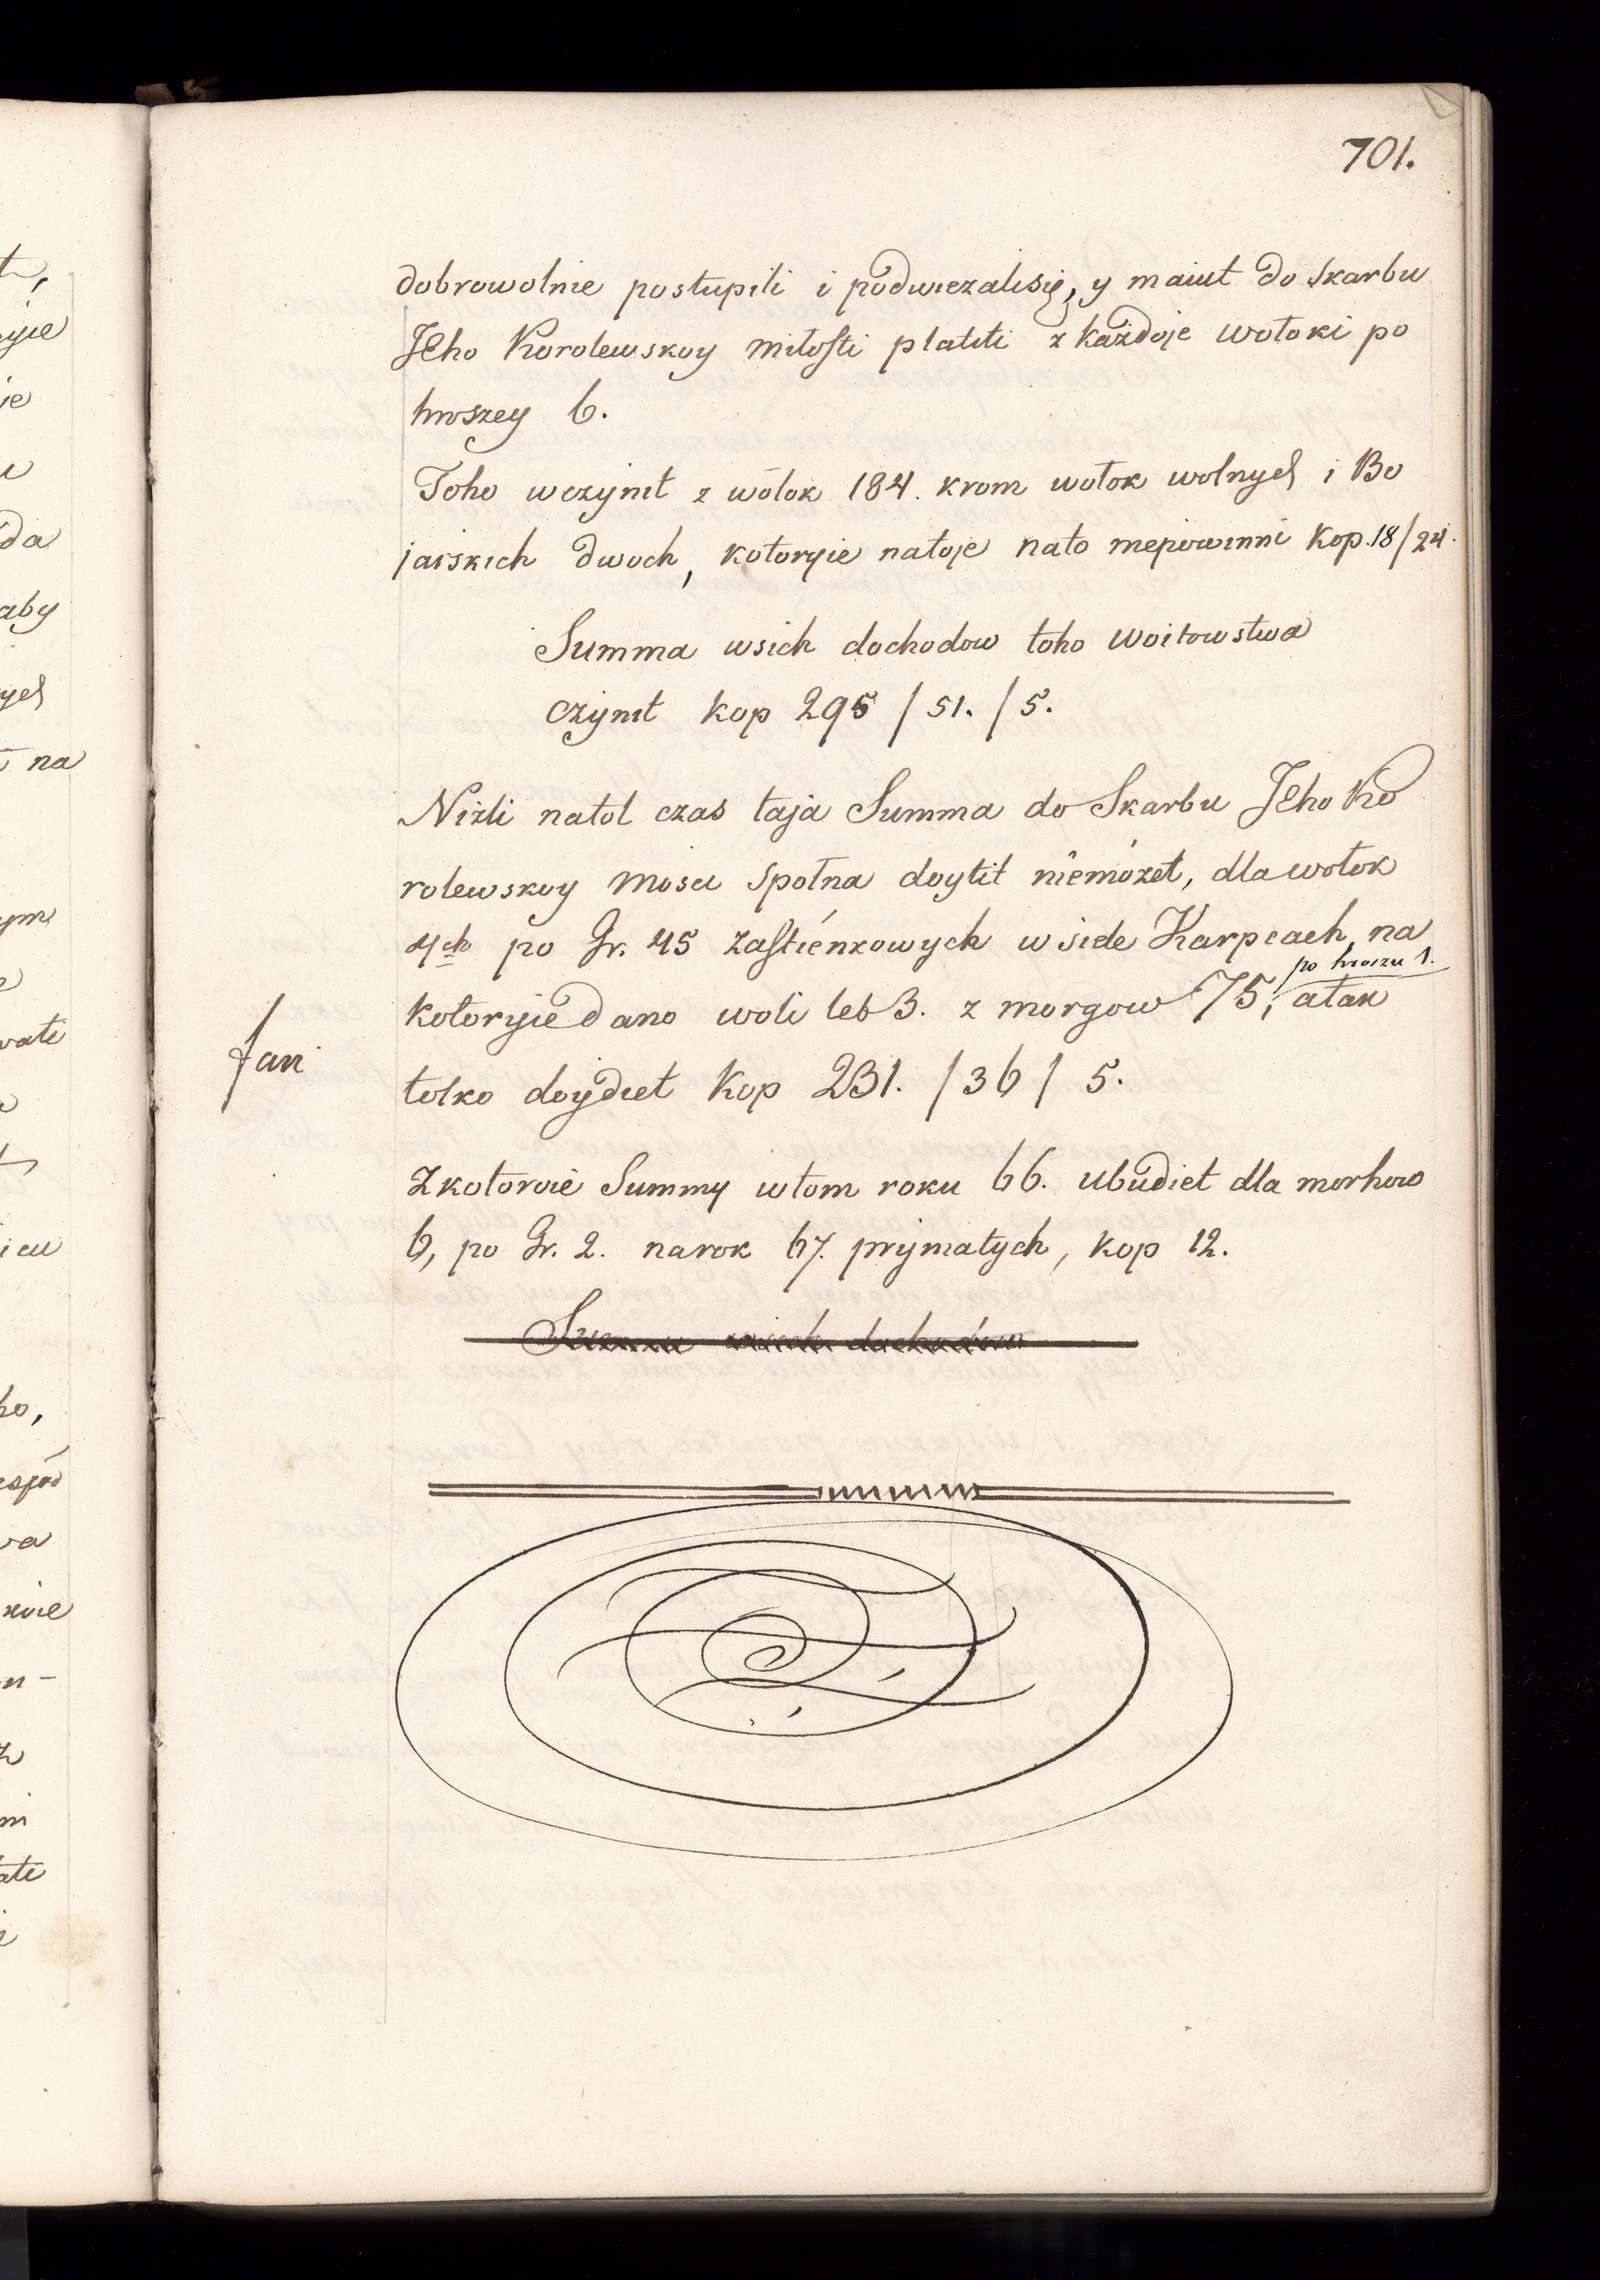 701.
dobrowolnie postupili i podwiezalisię, y maiut do skarbu
Jeho Korolewskoy miłosti płatiti z każdoje wołoki po
hroszey 6.
Toho wczynit z wołok 184. krom wołok wolnych i Bo
jarskich dwoch, kotoryie natoje nato niepowinni kop. 18/24.
Summa wsich dochodow toho woitowstwa
czynit kop 295 / 51. / 5.
Niżli natot czas taja Summa do Skarbu Jeho Ko
rolewskoy Mosci społna doytit niemożet, dla wołok
4ch po Gr. 45 zastienkowych w siele Karpcach, na
po hroszu 1.
kotoryie dano woli let 3. z morgow 75, atak
tolko doydiet kop 231. / 36 / 5.
Zkotoroie Summy wtom roku 66. ubudiet dla morhow
6, po Gr. 2. narok 67. pryjmatych, kop 12.
Summa wsich dochodow